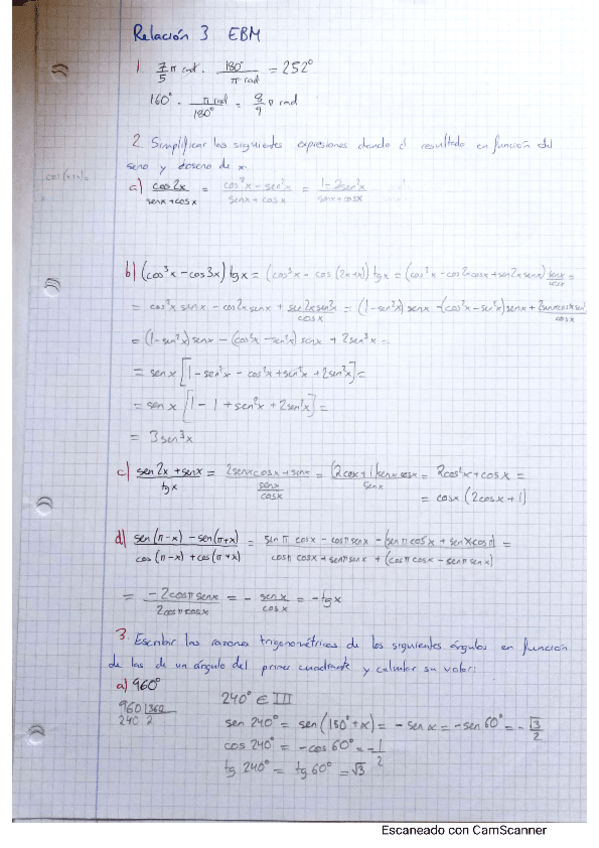 Relación 3 EBM
1. 7/5 π rad · 180°/π rad = 252°
160° · π rad/180° = 8/9 π rad
2. Simplificar las siguientes expresiones dando el resultado en función del
seno y coseno de x.
a) cos2x/senx+cosx = cos²x-sen²x/senx+cosx = 1-2sen²x/senx+cosx
b) (cos²x-cos3x) tgx = (cos³x - cos(2x+x)) tgx = (cos²x - cos2xcosx + sen2x senx) senx/cosx =
= cos²x senx - cos2x senx + sen2x sen²x/cosx = (1-sen²x) senx - (cos²x - sen²x) senx +
= (1-sen²x) senx - (cos²x - sen²x) senx + 2sen³x =
= senx [1 - sen²x - cos²x + sen²x + 2sen²x] =
= senx [1 - 1 + sen²x + 2sen²x] =
= 3sen³x
c) sen2x + senx/tgx = 2senxcosx + senx/(senx/cosx) = (2cosx+1)senx cosx/senx = 2cos²x + cosx =
= cosx (2cosx + 1)
d) sen(π-x) - sen(π+x)/cos(π-x) + cos(π+x) = sen π cosx - cosπ senx - (sen π cosx + senxcosπ)/cosπ cosx + senπ senx + (cosπ cosx - senπ senx) =
= -2cosπ senx/2cosπ cosx = - senx/cosx = -tgx
3. Escribir las razones trigonométricas de los siguientes ángulos en función
de las de un ángulo del primer cuadrante y calcular su valor:
a) 960°
960 |360
240 2
240° ∈ III
sen 240° = sen(180°+x) = -senx = -sen60° = -√3/2
cos 240° = -cos60° = -1/2
tg 240° = tg60° = √3
Escaneado con CamScanner